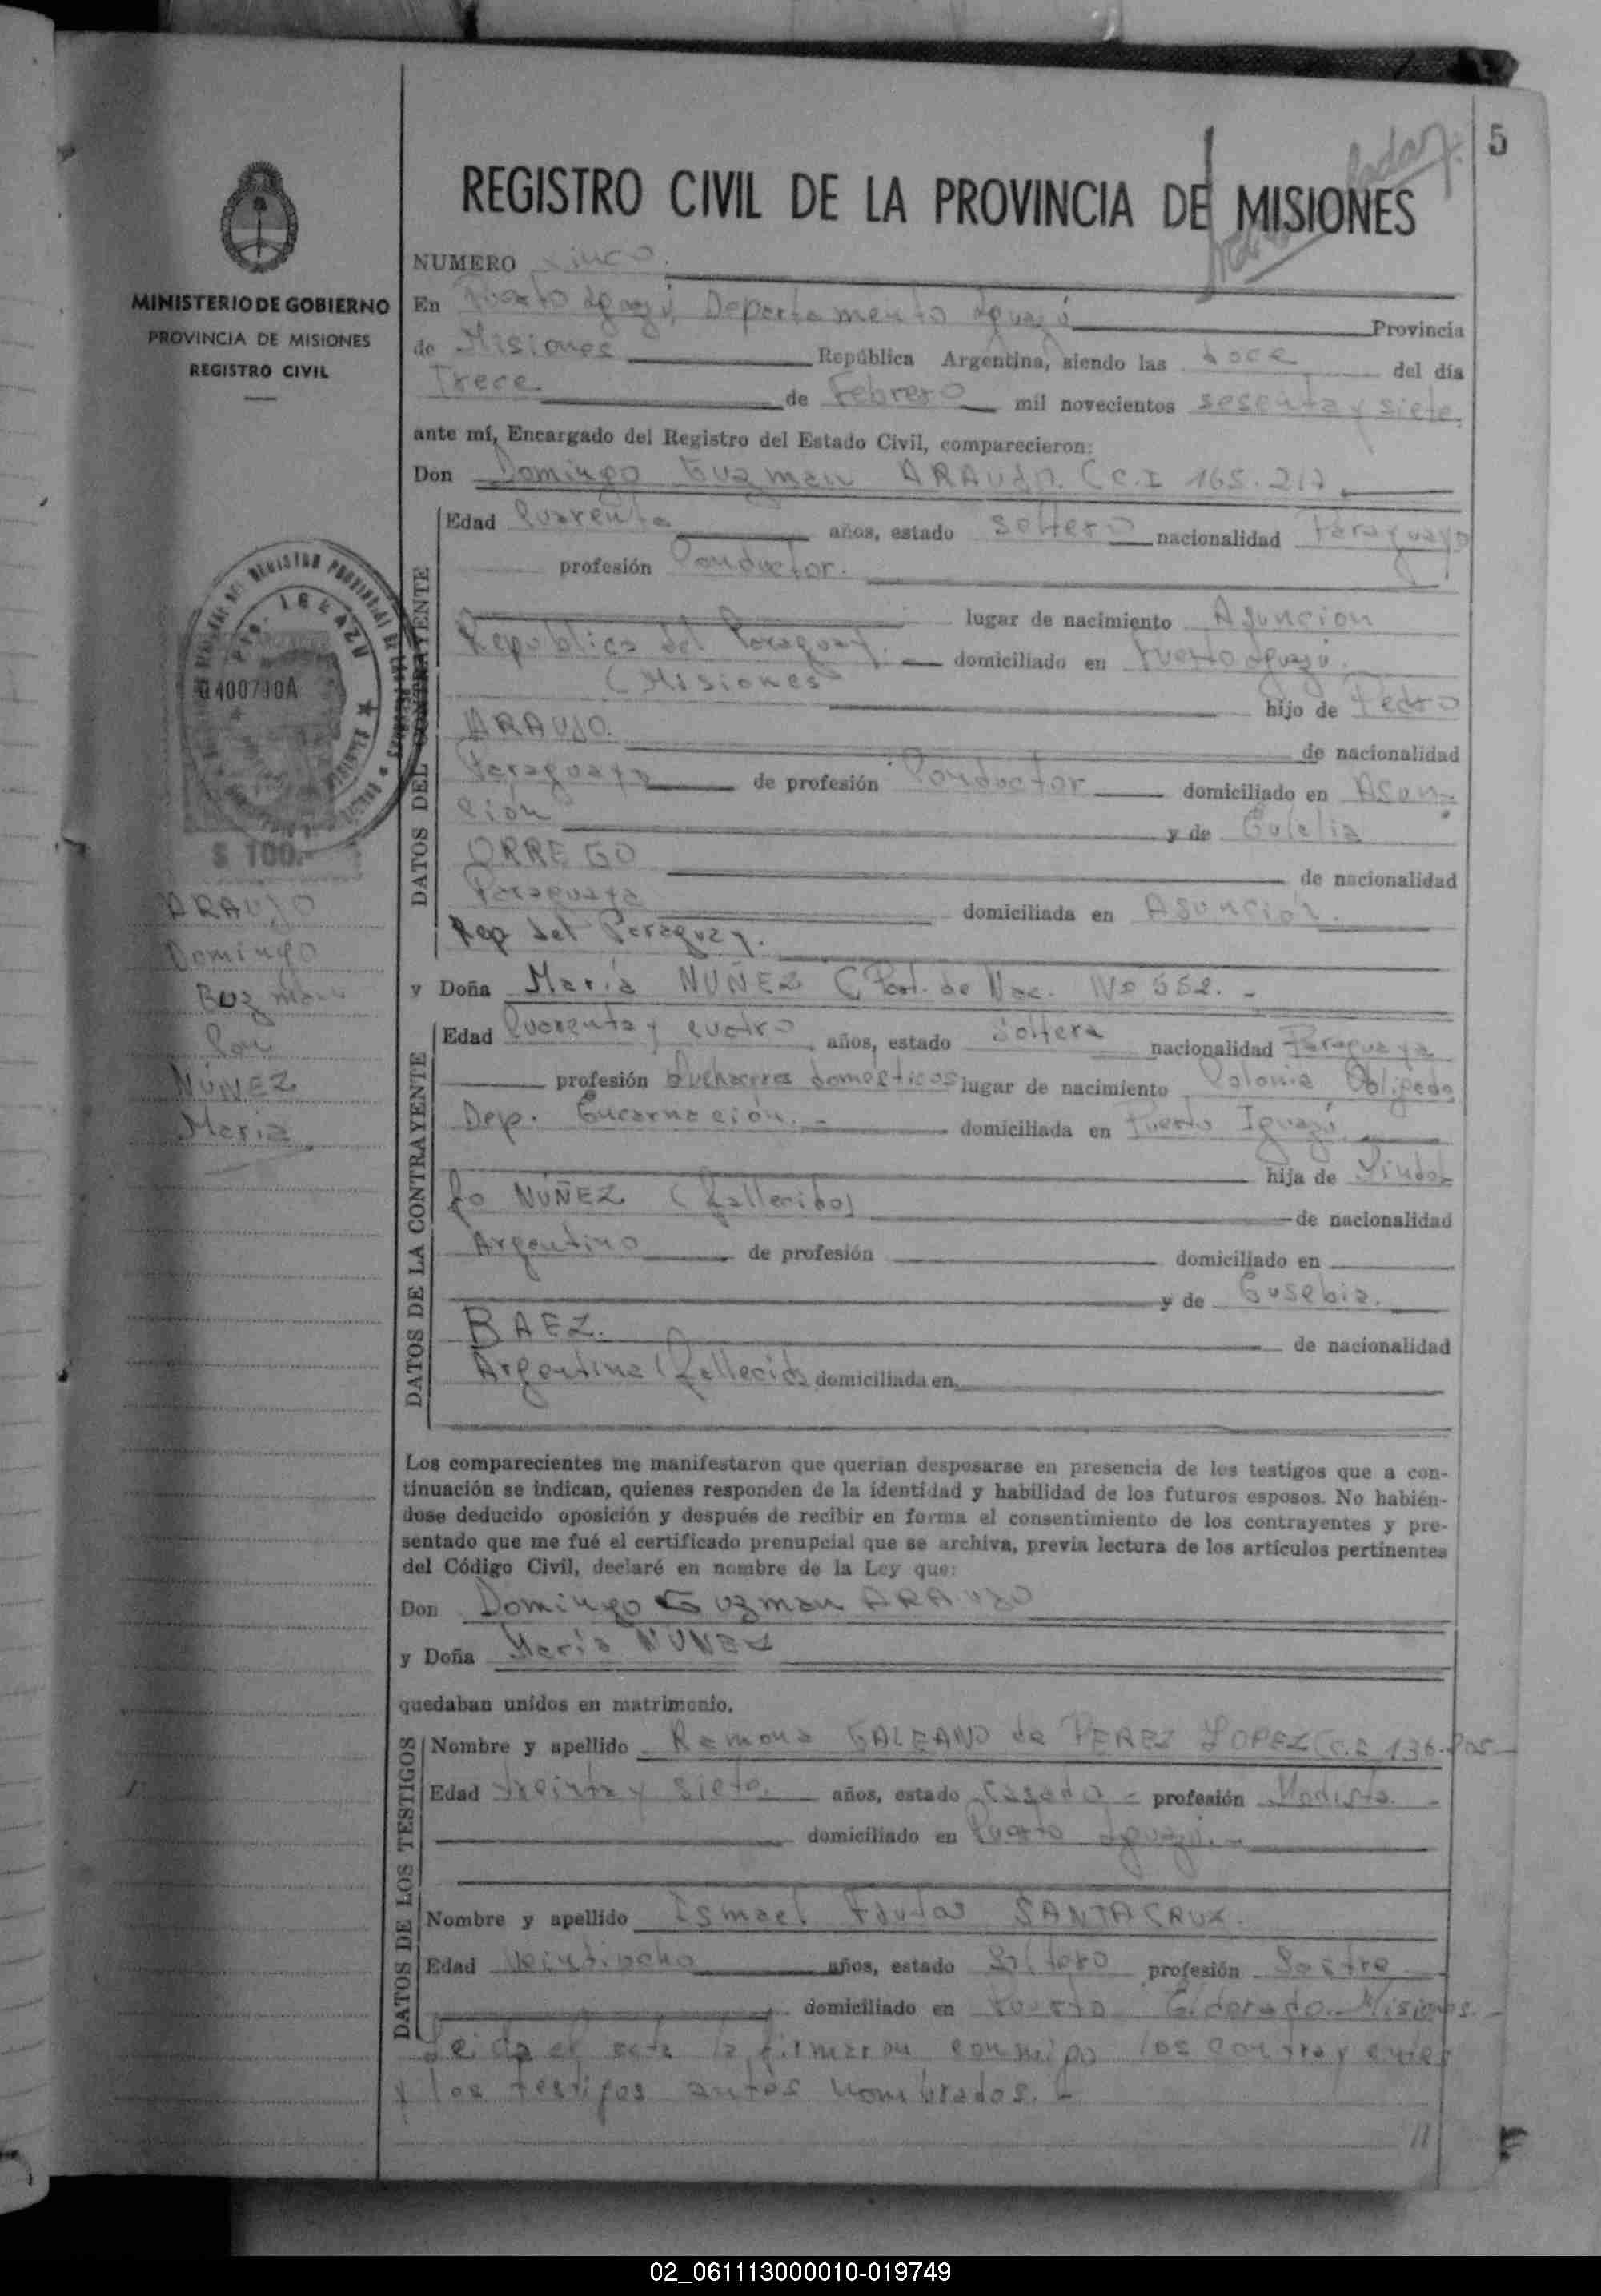 5
REGISTRO CIVIL DE LA PROVINCIA DE MISIONES
MINISTERIO DE GOBIERNO
PROVINCIA DE MISIONES
REGISTRO CIVIL
NUMERO Cinco.
En Puerto Iguazú, Departamento Iguazú Provincia
de Misiones República Argentina, siendo las doce del día
Trece de Febrero mil novecientos sesenta y siete.
ante mí, Encargado del Registro del Estado Civil, comparecieron:
Don Domingo Guzman ARAUJO. (C.I 165.217
DATOS DEL CONTRAYENTE
Edad Cuarenta años, estado soltero nacionalidad Paraguayo
profesión Conductor.
lugar de nacimiento Asuncion
Republica del Paraguay. domiciliado en Puerto Iguazú.
(Misiones
hijo de Pedro
ARAUJO. de nacionalidad
Paraguaya de profesión Conductor domiciliado en Asun-
ción y de Eulelia
ORREGO de nacionalidad
Paraguaya domiciliada en Asunción.
Rep del Paraguay.
0400790A
$ 100.-
ARAUJO
Domingo
Guzman
Con
NÚÑEZ
Maria
y Doña María NUÑEZ (Part. de Nac. Nº 552. -
DATOS DE LA CONTRAYENTE
Edad Cuarenta y cuatro años, estado soltera nacionalidad Paraguaya
profesión Quehaceres domesticos lugar de nacimiento Colonia Obligado
Dep. Encarnación. - domiciliada en Puerto Iguazú.
hija de Lindol-
fo NUÑEZ (fallecido) de nacionalidad
Argentino de profesión domiciliado en
y de Eusebia.
BAEZ. de nacionalidad
Argentina (fallecida domiciliada en
Los comparecientes me manifestaron que querían desposarse en presencia de los testigos que a con-
tinuación se indican, quienes responden de la identidad y habilidad de los futuros esposos. No habién-
dose deducido oposición y después de recibir en forma el consentimiento de los contrayentes y pre-
sentado que me fué el certificado prenupcial que se archiva, previa lectura de los artículos pertinentes
del Código Civil, declaré en nombre de la Ley que:
Don Domingo Guzman ARAUJO
y Doña María NUÑEZ
quedaban unidos en matrimonio.
DATOS DE LOS TESTIGOS
Nombre y apellido Ramona GALEANO de PEREZ LOPEZ (C.I. 136.805-
Edad treinta y siete. años, estado casada - profesión Modista. -
domiciliado en Puerto Iguazú. -
Nombre y apellido Ismael SANTACRUZ.
Edad Veintiocho años, estado Soltero profesión Sastre
domiciliado en Puerto Eldorado. Misiones. -
Leida el acta la firmaron conmigo los contrayentes
y los testigos antes nombrados. -
02_061113000010-019749